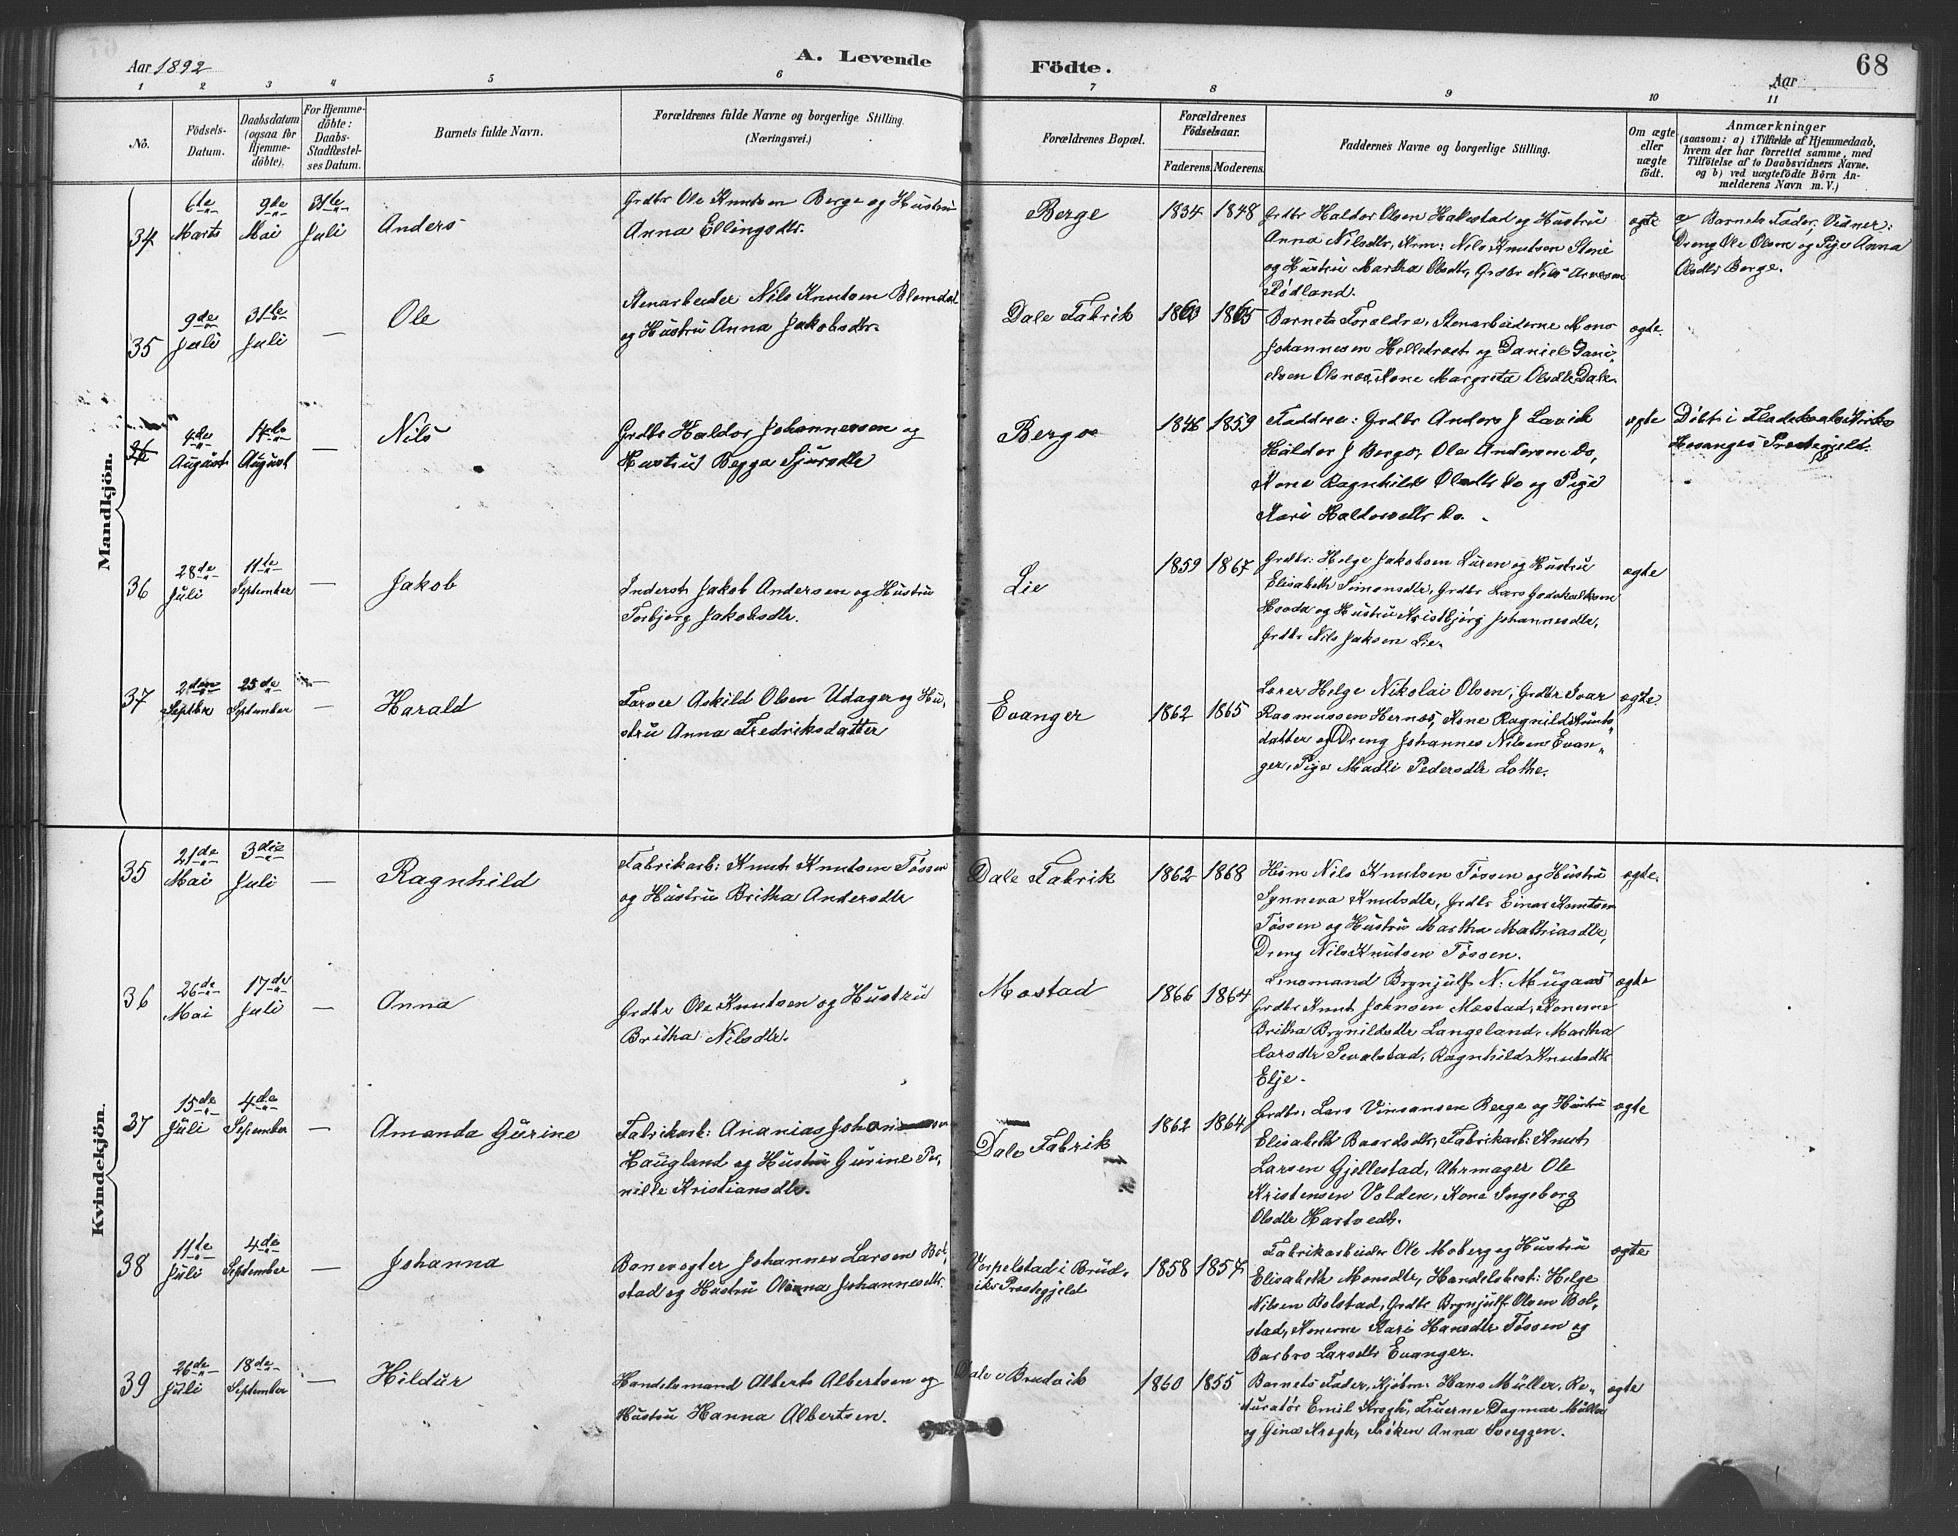 Aar 1892
A. Levende
Födte.
Aar
68
1 2 3 4 5 6 7 8 9 10 11
No.
Födsels-
Datum.
Daabsdatum
(ogsaa for
Hjemme-
döbte).
For Hjemme-
döbte:
Daabs-
Stadfæstel-
ses Datum.
Barnets fulde Navn.
Forældrenes fulde Navne og borgerlige Stilling.
(Næringsvei.)
Forældrenes Bopæl.
Forældrenes
Födselsaar.
Faderens. Moderens.
Faddernes Navne og borgerlige Stilling.
Om ægte
eller
uægte
födt.
Anmærkninger
(saasom: a) i Tilfælde af Hjemmedaab,
hvem der har forrettet samme, med
Tilföielse af to Daabsvidners Navne.
og b) ved uægtefödte Börn An-
melderens Navn m. V.)
Mandkjön.
34
6te
Marts
9de
Mai
31te
Juli
Anders
Grdbr Ole Knutsen Berge og Hustru
Anna Ellingsdtr.
Berge
1834 1848
Grdbr Haldor Olsen Hallestad og Hustru
Anna Nilsdtr, Nils Knutsen
og Hustru Martha Olsdtr, Grdbr Nils Arnesen
Rødland.
ægte
a/ Barnets Fader, Vidner:
Dreng Ole Olsen og Pige Anna
Olsdtr Berge.
35
9de
Juli
31te
Juli
—
Ole
Stenarbeider Nils Knutsen Blomdal
og Hustru Anna Jakobsdtr.
Dale Fabrik
1863 1865
Barnets Forældre, Stenarbeiderne Mons
Johannesen Helletvet og Daniel Dani-
elsen Olsnes, Kone Margreta Olsdtr Dale.
ægte.
4de
August
14de
August
—
Nils
Grdbr Haldor Johannesen og
Hustru Begga Sjursdtr
Berge
1846 1859
Faddere: Grdbr Anders J Lavik
Haldor J Berge, Ole Andersen Do,
Kone Ragnhild Olsdtr Do og Pige
Kari Haldorsdtr Do.
ægte
Døbt i
Hosanger Præstegjeld.
36
28de
Juli
11te
September
—
Jakob
Inderst Jakob Andersen og Hustru
Torbjørg Jakobsdtr.
Lie
1859 1867
Grdbr: Helge Jakobsen Luren og Hustru
Elisabeth Simonsdtr, Grdbr Lars Godskalksen
og Hustru Kristbjørg Johannesdtr,
Grdbr Nils Jaksen Lie.
ægte
37
2den
Septbr
25de
September
—
Harald
Farver Askild Olsen Udager og Hu-
stru Anna Fredriksdatter
Evanger
1862 1865
Lærer Helge Nikolai Olsen, Grdbr Ivar
Rasmussen Hernes, Kone Ragnild Knuts-
datter og Dreng Johannes Nilsen Evan-
ger, Pige Madli Pedersdtr Lothe.
ægte.
Kvindekjön.
35
21de
Mai
3die
Juli
—
Ragnhild
Fabrikarb: Knut Knutsen Tøssen
og Hustru Britha Andersdtr
Dale Fabrik
1862 1868
Husm Nils Knutsen Tøssen og Hustru
Synneva Knutsdtr, Grdbr Einar Knutsen
Tøssen og Hustru Martha Mathiasdtr,
Dreng Nils Knutsen Tøssen.
ægte.
36
26de
Mai
17de
Juli
—
Anna
Grdbr Ole Knutsen og Hustru
Britha Nilsdtr.
Mostad
1866 1864
Lensmand Brynjulf N. Mugaas
Grdbr Knut Johnsen Mostad, Konerne
Britha Brynildsdtr Langeland, Martha
Larsdtr, Ragnhild Knutsdtr
Elje.
ægte
37
15de
Juli
4de
September
—
Amanda Gurine
Fabrikarb: Ananias
Haugland og Hustru Gurine Per-
nille Kristiansdtr.
Dale Fabrik
1862 1864
Grdbr, Lars Vinsansen Berge og Hustru
Elisabeth Baardsdtr, Fabrikarb: Knut
Larsen Gjellestad, Uhrmager Ole
Kristensen Volden, Kone Ingeborg
Olsdtr Hartvedt.
ægte
38
11te
Juli
4de
September
—
Johanna
Banevogter Johannes Larsen Bol-
stad og Hustru Oliana Johannesdtr.
i Brud-
viks Præstegjeld
1858 1857
Fabrikarbeider Ole Moberg og Hustru
Elisabeth Monsdtr, Handelsbest: Helge
Nilsen Bolstad, Grdbr Brynjulf Olsen Bol-
stad, Konerne Kari Hansdtr Tøssen og
Barbro Larsdtr Evanger.
ægte
39
26de
Juli
18de
September
—
Hildur
Handelsmand Albert Albertsen og
Hustru Hanna Albertsen.
Dale i Brudvik
1860 1855
Barnets Fader, Kjøbm: Hans Müller, Re-
Emil Krogh, Fruerne Dagmar Müller
og Gina Krogh, Frøken Anna Sveggen.
ægte